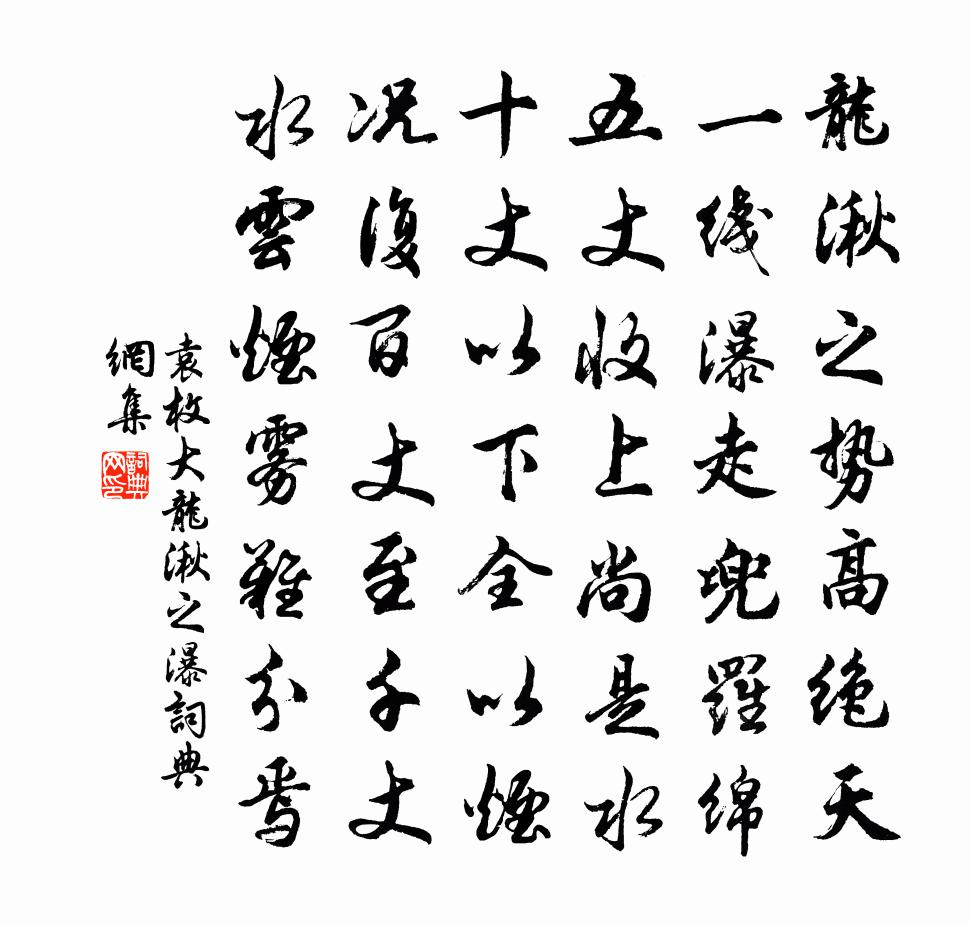 龍湫之勢高絶天
一綫瀑走兜羅綿
五丈收上尚是水
十丈以下全以煙
况復百丈至千丈
水雲煙雾難分焉
袁枚大龍湫之瀑詞典
網集
詞典網印